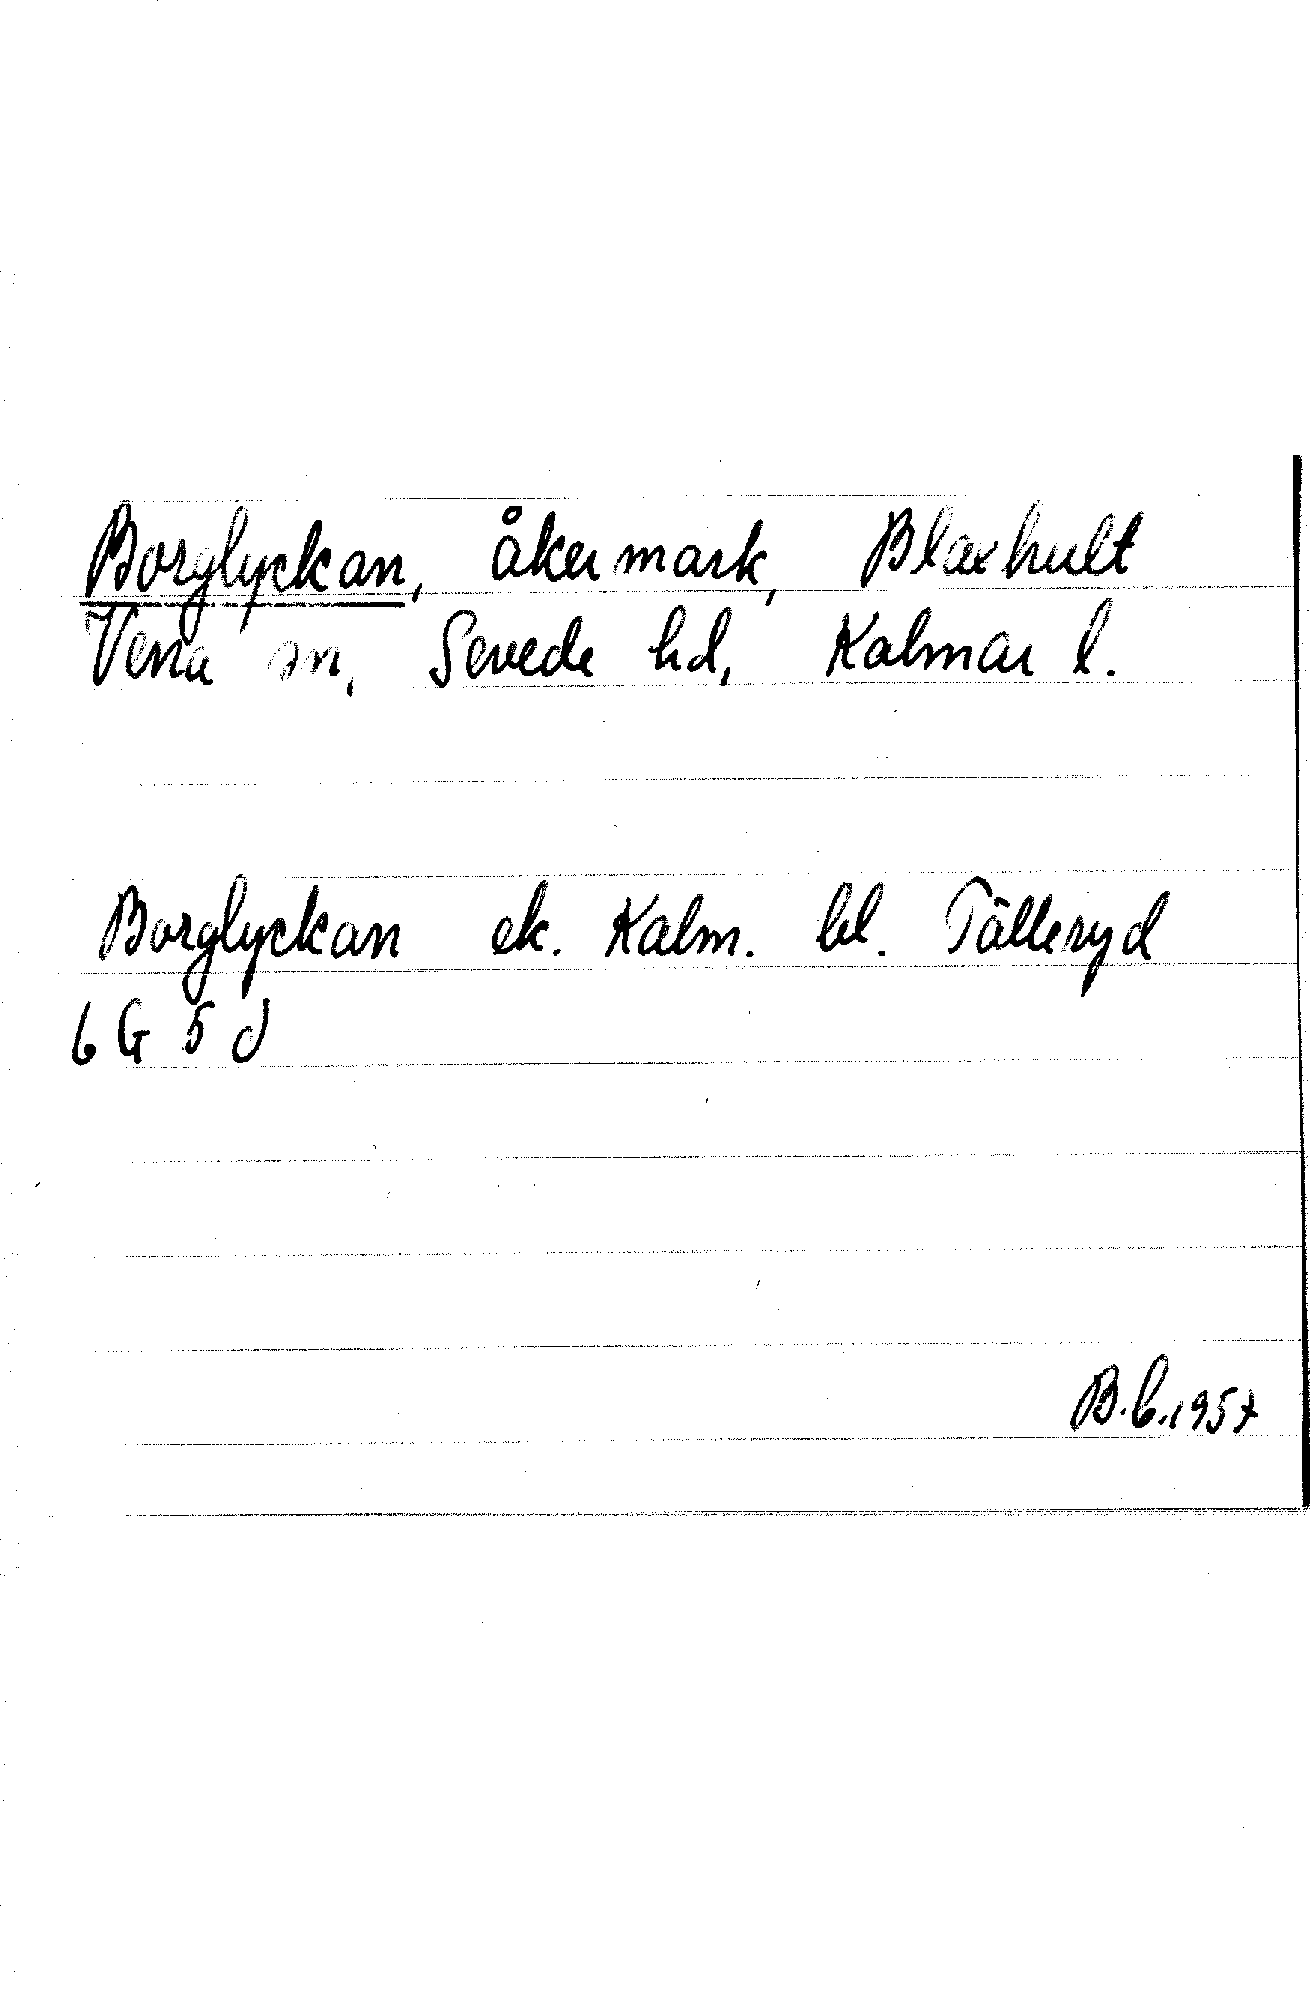 Borglyckan, åkermark, Blaxhult
Vena sn, Sevede hd, Kalmar l.
Borglyckan ek. Kalm. bl. Tälleryd
6 G 5 d
B.C.1957